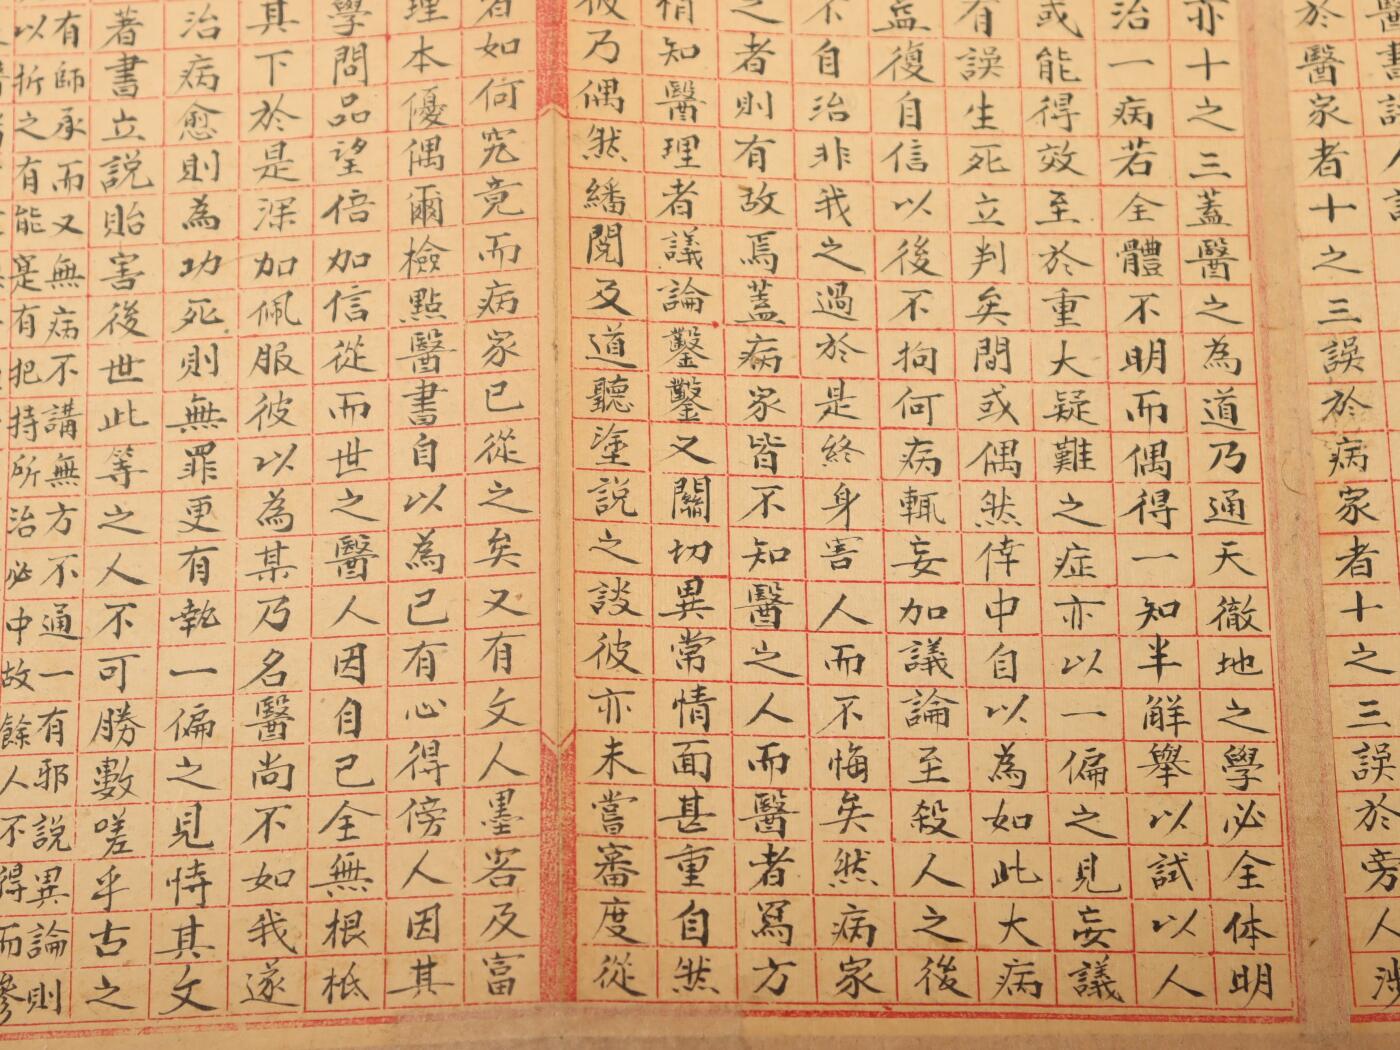 於醫家者十之三誤於病家者十之三誤於旁人涉
亦十之三蓋醫之為道乃通天徹地之學必全体明
治一病若全體不明而偶得一知半解舉以試以人
或能得效至於重大疑難之症亦以一偏之見妄議
有誤生死立判矣間或偶然倖中自以為如此大病
益復自信以後不拘何病輒妄加議論至殺人之後
不自治非我之過於是終身害人而不悔矣然病家
之者則有故焉蓋病家皆不知醫之人而醫者寫方
稍知醫理者議論鑿鑿又關切異常情面甚重自然
彼乃偶然繙閱及道聽塗說之談彼亦未嘗審度從
者如何究竟而病家已從之矣又有文人墨客及富
理本優偶爾檢點醫書自以為已有心得傍人因其
學問品望倍加信從而世之醫人因自己全無根柢
其下於是深加佩服彼以為某乃名醫尚不如我遂
治病愈則為功死則無罪更有執一偏之見恃其文
著書立說貽害後世此等之人不可勝數嗟乎古之
有師承而又無病不講無方不通一有邪說異論則
以折之有能寔有把持所治必中故餘人不得而參